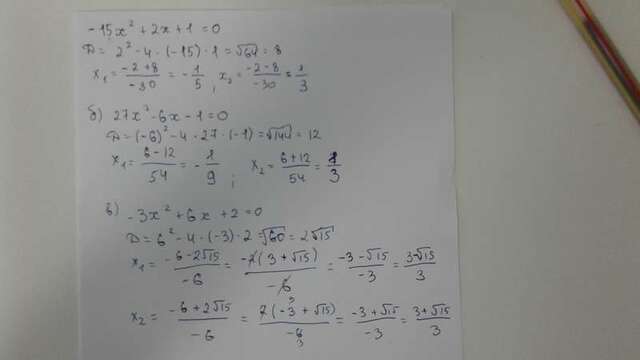 -15x² + 2x + 1 = 0
D = 2² - 4 · (-15) · 1 = √64 = 8
x₁ = (-2+8)/(-30) = -1/5 ; x₂ = (-2-8)/(-30) = 1/3
б) 27x² - 6x - 1 = 0
D = (-6)² - 4 · 27 · (-1) = √144 = 12
x₁ = (6-12)/54 = -1/9 ; x₂ = (6+12)/54 = 1/3
в) -3x² + 6x + 2 = 0
D = 6² - 4 · (-3) · 2 = √60 = 2√15
x₁ = (-6-2√15)/(-6) = (-2(3+√15))/(-6) = (-3-√15)/(-3) = (3-√15)/3
x₂ = (-6+2√15)/(-6) = (2(-3+√15))/(-6) = (-3+√15)/(-3) = (3+√15)/3